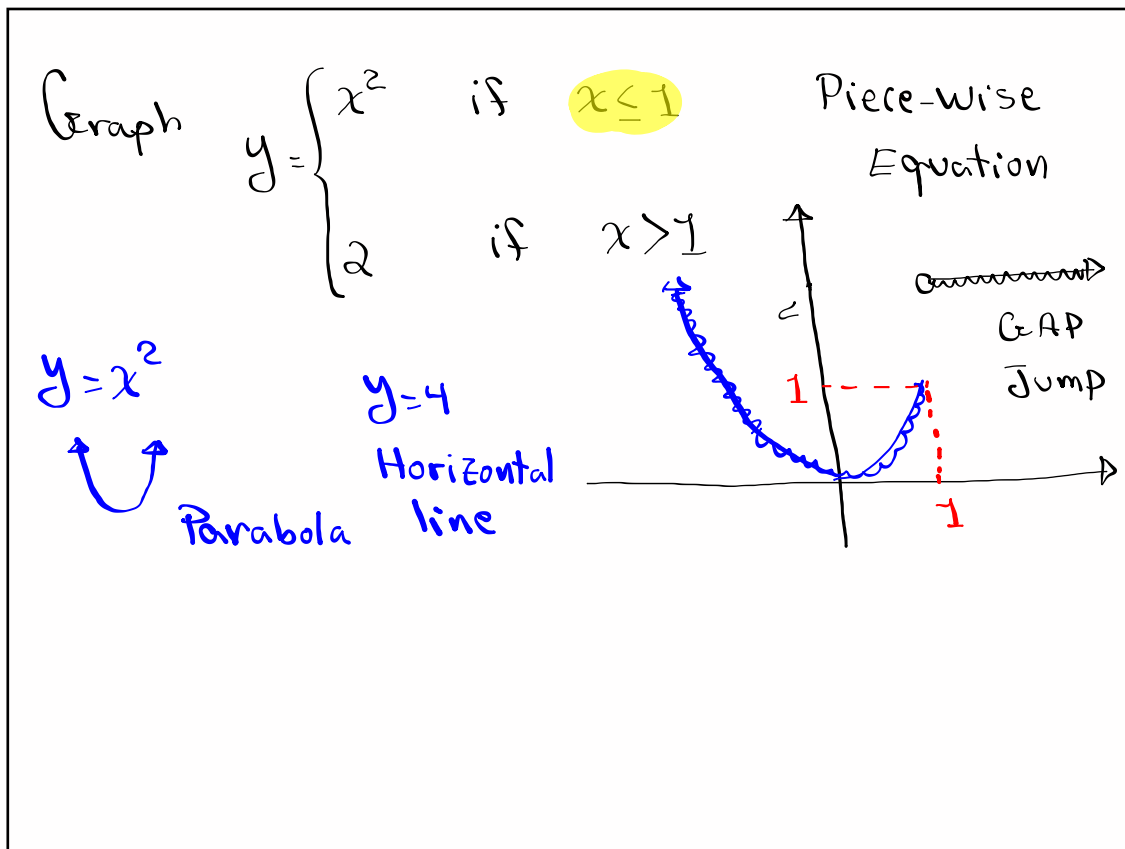 Graph y = { x² if x ≤ 1
2 if x > 1
Piece-wise
Equation
y = x²
Parabola
y = 4
Horizontal
line
GAP
Jump
1
1